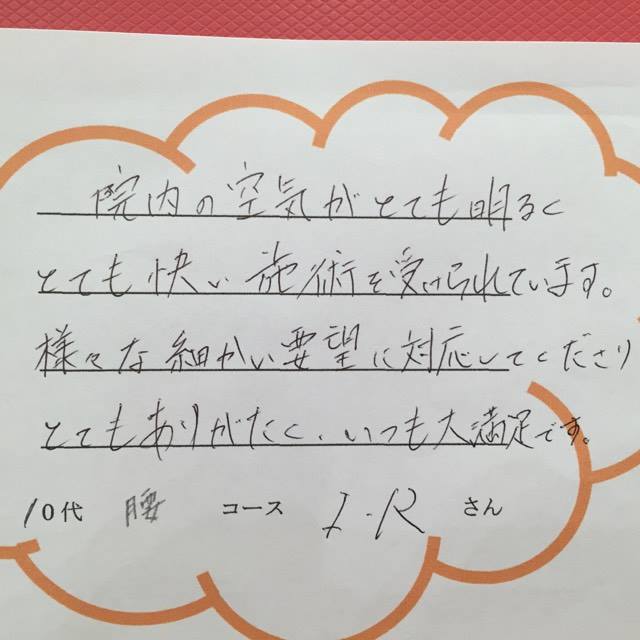 院内の空気がとても明るく
とても快い施術を受けられています。
様々な細かい要望に対応してくださり
とてもありがたく、いつも大満足です。
10代 腰 コース I.R さん